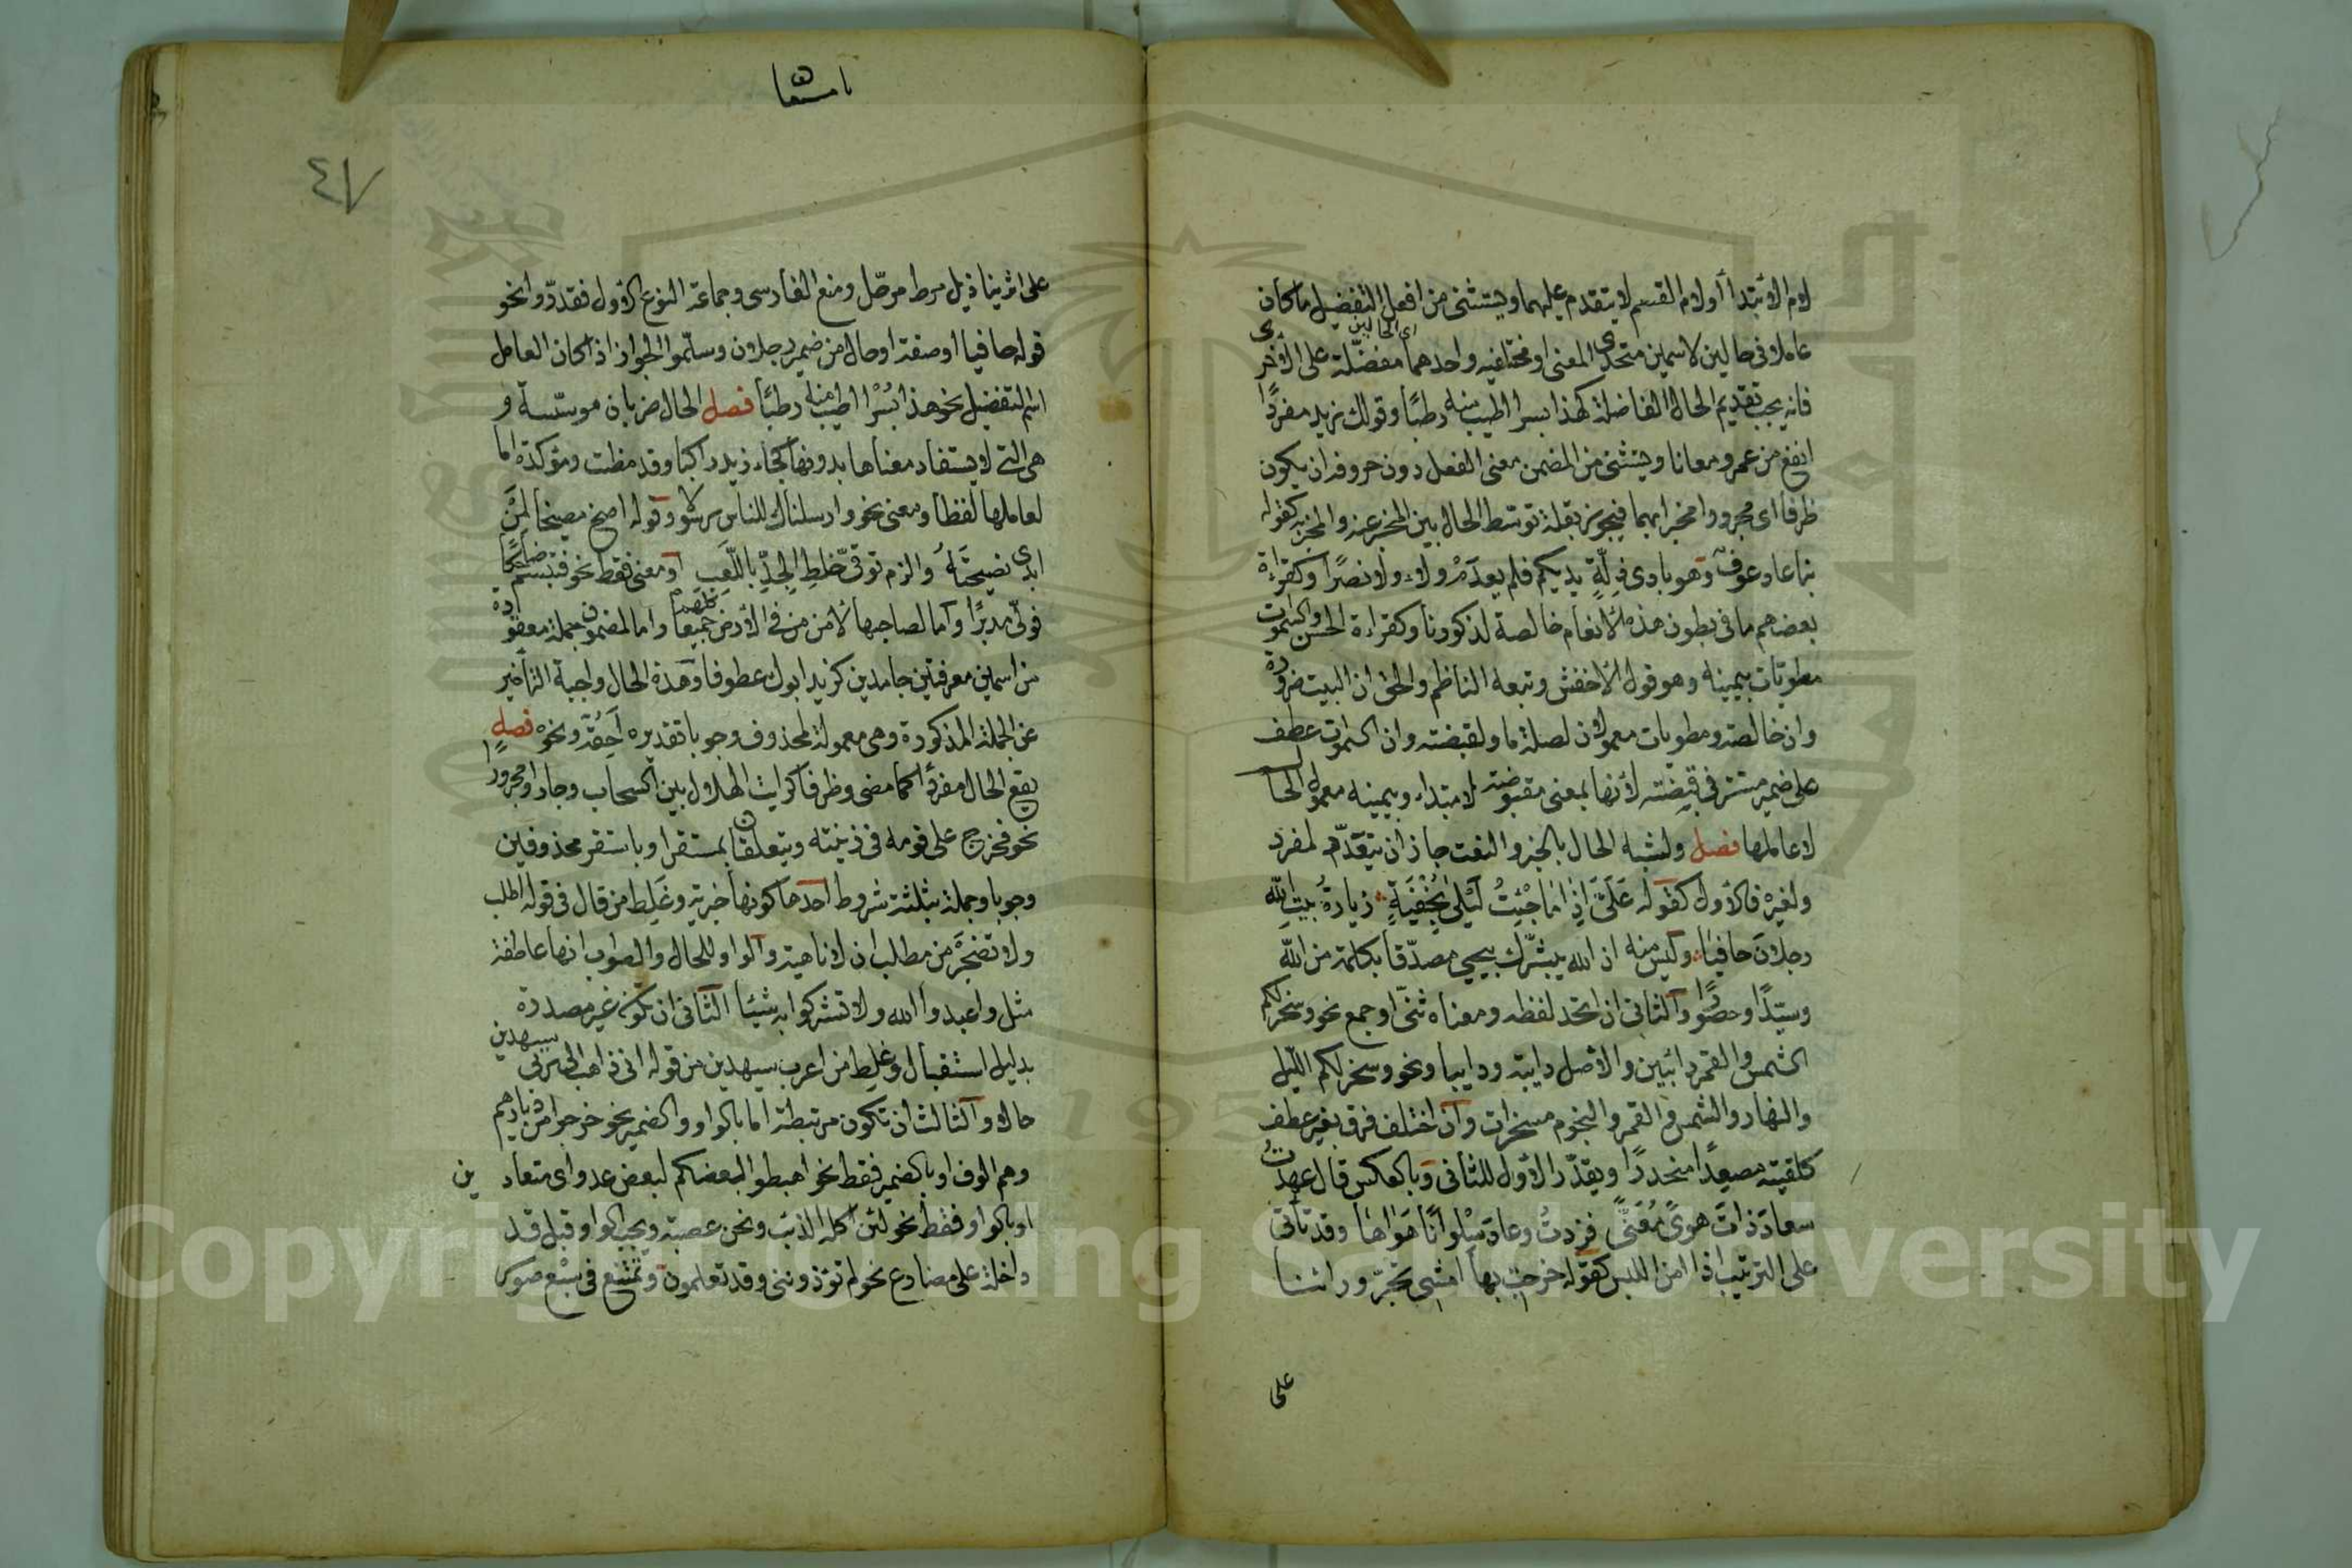 لام الابتدا أو لام القسم لا يتقدم عليهما ويستثنى من افعل التفضيل ما كان
عاملا فى حالين لاسمين متحدى المعنى او مختلفيه واحدهما مفضلة على الاخرى
اى الحالين
فانه يجب تقديم الحال الفاضلة كهذا بسرا اطيب منه رطبًا وقولك زيد مفردًا
انفع من عمرو معانا ويستثنى من المضمن معنى الفعل دون حروفه ان يكون
ظرفا اى مجرورا مخبرا بهما فيجوز بقلة توسّط الحال بين المخبر عنه والمخبر به كقوله
بنا عاذ عوف وهو بادى ذِلّةٍ لديكم فلم يعدَمْ ولاء ولا نصرًا وكقراءة
بعضهم ما فى بطون هذه الأنعام خالصة لذكورنا وكقراءة الحسن والسموات
مطويّات بيمينه وهو قول الأخفش وتبعه الناظم والحق ان البيت ضرورة
وان خالصة ومطويات معمولان لصلة ما ولقبضته وان السموات عطف
على ضمير مستتر فى قبضته لأنها بمعنى مقبوضته لا مبتداء وبيمينه معمول الحال
لا عاملها فصل ولشبه الحال بالخبر والنعت جاز ان يتعدّد لمفرد
ولغيره فالأول كقوله عَلَىَّ اِذا مَا جِئتُ لَيْلى بخُفْيَةٍ زيارةُ بيتِ اللّه
رجلانَ حافيًا وليس منه ان الله يبشّرك بيحيى مصدّقا بكلمة من اللّه
وسيّدًا وحصورًا والثانى ان اتحد لفظه ومعناه ثنّى او جمع نحو وسخر لكم
الشمس والقمر دائبين والأصل دايبة ودايبا ونحو وسخر لكم الليل
والنهار والشمس والقمر والنجوم مسخرات وان اختلف فرق بغير عطف
كلقيته مصعِدًا منحدرًا ويقدّر الأول للثانى وبالعكس قال عهدتُ
سعادَ ذاتَ هوًى مُعَنًّى فزدتُ وعادَ سُلوانًا هَوَاهَا وقد تأتى
على الترتيب اذا امن اللبس كقوله خرجت بها امشى تجرّ وراءنا
على
٤٧
على اثرينا ذيل مرط مرحّل ومنع الفارسى وجماعة النوع الأول فقدّروا نحو
قوله حافيا اوصفة او حال من ضمير رجلان وسلّموا الجواز اذا كان العامل
اسم التفضيل نحو هذا بُسْرًا اطيب منه رطبًا فصل الحال ضربان مؤسّسة و
هى التى لا يستفاد معناها بدونها كجاء زيد راكبًا وقد مضت ومؤكدة اما
لعاملها لفظا ومعنى نحو وارسلناك للناس رسولا وقوله اصخ مصيخا لمَنْ
ابدى نصيحتَهُ والزم توقّى خلطِ الجِدِّ باللّعَبِ او معنى فقط نحو فتبسّم ضاحكًا
فولّى مدبرًا واما لصاحبها لأمن من فى الأرض كلهم جميعا واما لمضمون جملة معقودة
من اسمين معرفتين جامدين كزيد ابوك عطوفا وهذه الحال واجبة التأخير
عن الجملة المذكورة وهى معمولة لمحذوف وجوبا تقديره اَحُقّه ونحوه فصل
يقع الحال مفردًا كما مضى وظرفا كرايت الهلال بين السحاب وجارا ومجرورًا
نحو فخرج على قومه فى زينته ويتعلقان بمستقر او باستقر محذوفين
وجوبا وجملة بثلثة شروط احدها كونها خبرية وغَلِط من قال فى قوله اطلب
ولا تضجَرَ من مطلب ان لا ناهية والواو للحال والصواب انها عاطفة
مثل واعبدوا الله ولا تشركوا به شيئا الثانى ان تكون غير مصدرة
بدليل استقبال وغلِط من اعرب سيهدين من قوله انى ذاهب الى ربى سيهدين
حالا والثالث ان تكون مرتبطة اما بالواو والضمير نحو خرجوا من ديارهم
وهم الوف او بالضمير فقط نحو اهبطوا بعضكم لبعض عدو اى متعادين
او بالواو فقط نحو لئن اكله الذئب ونحن عصبة ويجب الواو قبل قد
داخلة على مضارع نحو لم تؤذوننى وقد تعلمون وتمتنع فى سبْع صور
Copyright © King Saud University